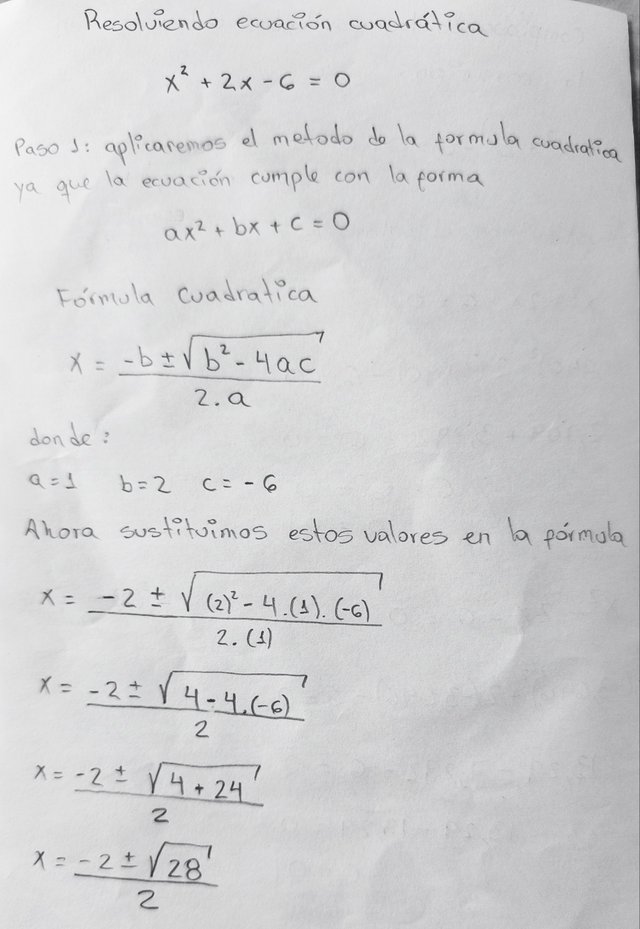 Resolviendo ecuación cuadrática
x² + 2x - 6 = 0
Paso 1: aplicaremos el metodo de la formula cuadratica
ya que la ecuación cumple con la forma
ax² + bx + c = 0
Fórmula cuadratica
x = (-b ± √(b² - 4ac)) / (2.a)
donde:
a=1 b=2 c=-6
Ahora sustituimos estos valores en la fórmula
x = (-2 ± √((2)² - 4.(1).(-6))) / (2.(1))
x = (-2 ± √(4 - 4.(-6))) / 2
x = (-2 ± √(4 + 24)) / 2
x = (-2 ± √28) / 2